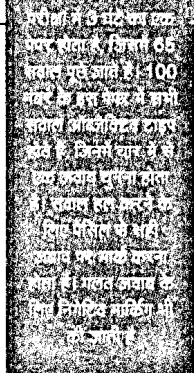 परीक्षा में 3 घंटे का एक
पेपर होता है, जिसमें 65
सवाल पूछे जाते हैं। 100
नंबर के इस पेपर में सभी
सवाल ऑब्जेक्टिव टाइप
होते हैं, जिनमें चार में से
एक जवाब चुनना होता
है। सवाल हल करने के
लिए पेंसिल से सही
जवाब पर मार्क करना
होता है। गलत जवाब के
लिए निगेटिव मार्किंग भी
की जाती है